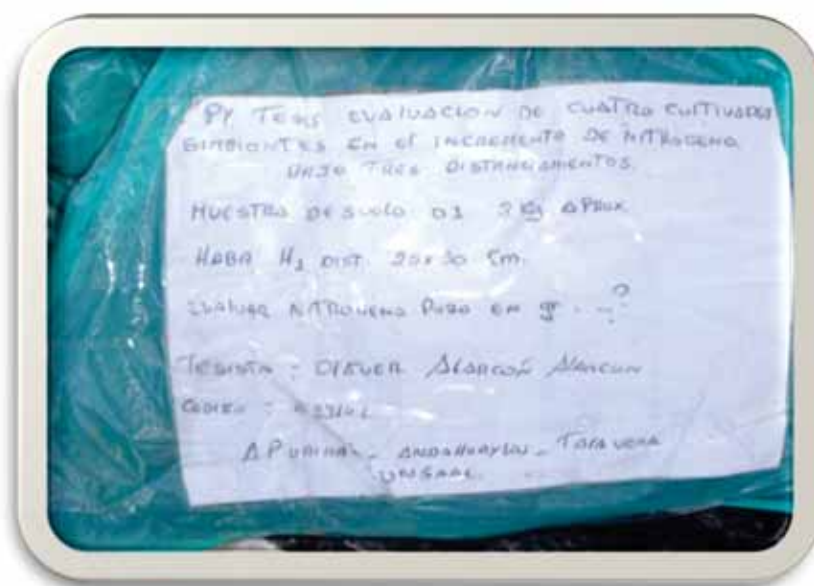 PY TESIS EVALUACION DE CUATRO CULTIVADOS
SIMBIONTES EN EL INCREMENTO DE NITROGENO
BAJO TRES DISTANCIAMIENTOS.
MUESTRA DE SUELO 01 2 Kg APROX
HABA H1 DIST. 20x30 cm.
EVALUAR NITROGENO PURO EN g . ..?
TESISTA : ALARCÓN ALARCON
CODIGO :
APURIMAC - ANDAHUAYLAS - TALAVERA
UNSAAC.